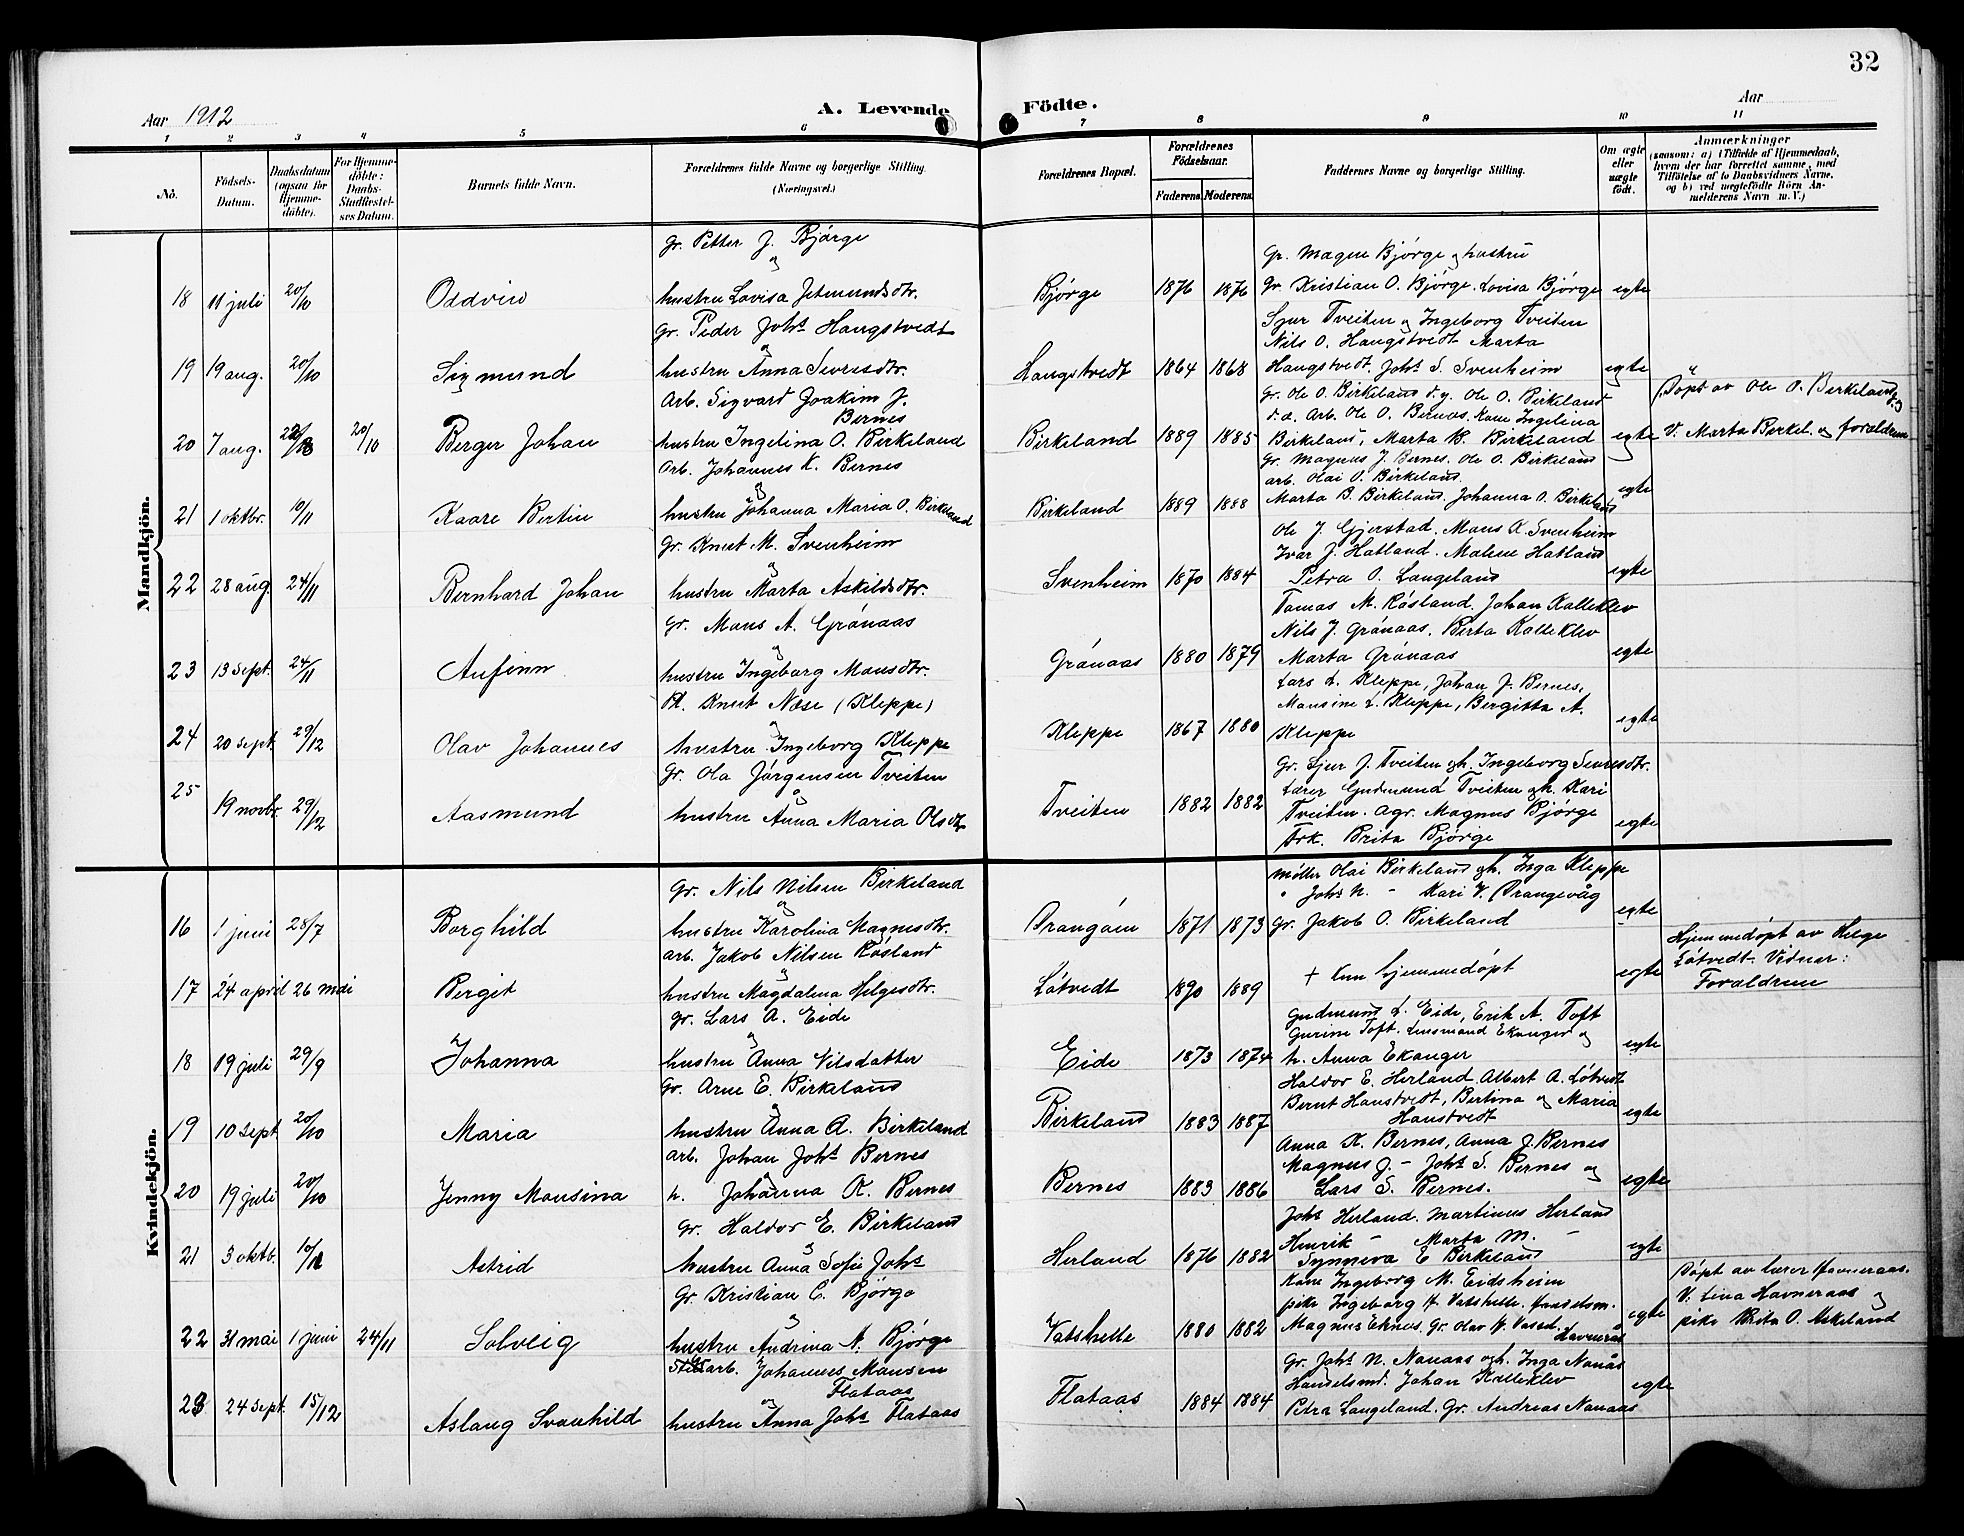 32
Aar 1912
A. Levende Födte.
Aar
1 2 3 4 5 6 7 8 9 10 11
No.
Födsels-Datum.
Daabsdatum (ogsaa for Hjemmedöbte).
For Hjemmedöbte: Daabs-Stadfæstelses Datum.
Barnets fulde Navn.
Forældrenes fulde Navne og borgerlige Stilling. (Næringsvei.)
Forældrenes Bopæl.
Forældrenes Födselsaar.
Faderens. Moderens.
Faddernes Navne og borgerlige Stilling.
Om ægte eller uægte födt.
Anmærkninger (saasom: a) i Tilfælde af Hjemmedaab, hvem der har forrettet samme, med Tilföielse af to Daabsvidners Navne, og b) ved uægtefödte Börn Anmelderens Navn m. V.)
Mandkjön.
gr. Petter J. Bjørge
og
18 11 juli 20/10 Oddvin hustru Lovisa Jetmundsdtr. Bjørge 1876 1876
Gr. Magne Bjørge og hustru
gr. Kristian O. Bjørge. Lovisa Bjørge egte
Sjur Tveiten og Ingeborg Tveiten
gr. Peder Johs Haugstvedt
og
19 19 aug. 20/10 Sigmund hustru Anna Sivresdtr. Haugstvedt 1864 1868
Nils O. Haugstvedt Marta
Haugstvedt. Johs S. Svenheim egte "
Arb. Sigvard Joakim J. Bernes
20 7 aug. 20/10 Berger Johan hustru Ingelina O. Birkeland Birkeland 1889 1885
Gr. Ole O. Birkeland d.y. Ole O. Birkeland
d.æ. Arb. Ole O. Bernes. Kone Ingelina
Birkeland, Marta B. Birkeland egte
Døpt av Ole O. Birkeland d.y
V. Marta Birkel. og foraldrene
arb. Johannes K. Bernes
og
21 1 oktbr. 10/11 Kaare Bertin hustru Johanna Maria O. Birkeland Birkeland 1889 1888
Gr. Magnus J. Bernes. Ole O. Birkeland
arb. Olai O. Birkeland.
Marta B. Birkeland. Johanna O. Birkeland egte
Gr. Knut M. Svenheim
og
22 28 aug. 24/11 Bernhard Johan hustru Marta Askildsdtr. Svenheim 1870 1884
Ole J. Gjerstad. Mons A. Svenheim
Ivar J. Hatland. Malene Hatland
Petra O. Langeland egte
gr. Mons A. Grónaas
og
23 13 sept. 24/11 Anfinn hustru Ingeborg Monsdtr. Grónaas 1880 1879
Tomas M. Rósland. Johan Kalleklev
Nils J. Grónaas. Berta Kalleklev
Marta Grónaas egte
Pl. Knut Næse (Kleppe)
og
24 20 sept. 29/12 Olav Johannes hustru Ingeborg Kleppe Kleppe 1867 1880
Lars L. Kleppe, Johan J. Bernes,
Monsine L. Kleppe, Birgitta A.
Kleppe egte
Gr. Ola Jørgensen Tveiten
og
25 19 novbr. 29/12 Aasmund hustru Anna Maria Olsdtr Tveiten 1882 1882
Gr. Sjur J. Tveiten og h. Ingeborg Sivresdtr.
Lærer Gudmund Tveiten og h. Kari
Tveiten. Agr. Magnus Bjørge
Frk. Brita Bjørge egte
Kvindekjön.
Gr. Nils Nilsen Birkeland
og
16 1 juni 28/7 Borghild hustru Karolina Magnesdtr. 1871 1873
Møller Olai Birkeland og h. Inga Kleppe
" Johs N. - Kari V. Drangevåg
Gr. Jakob O. Birkeland egte
arb. Jakob Nilsen Rósland
og
17 24 april 26 mai Bergit hustru Magdalena Helgesdtr. Lótvedt 1890 1889
+ Kun hjemmedøpt egte
Hjemmedøpt av Helge
Lótvedt. Vidner:
Foraldrene
gr. Lars A. Eide
og
18 19 juli 29/9 Johanna hustru Anna Nilsdatter Eide 1873 1874
Gudmund L. Eide, Erik A. Toft
Gurine Toft. Lensmand Ekanger og
h. Anna Ekanger egte
Gr. Arne E. Birkeland
og
19 10 sept 20/10 Maria hustru Anna A. Birkeland Birkeland 1883 1887
Haldor E. Herland. Albert A. Lótvedt
Bernt Haustvedt, Bertina og Maria
Haustvedt egte
arb. Johan Johs Bernes
og
20 19 juli 20/10 Jenny Monsina h. Johanna K. Bernes Bernes 1883 1886
Anna K. Bernes, Anna J. Bernes
Magnus J. - Johs S. Bernes og
Lars S. Bernes. egte
gr. Haldor E. Birkeland
og
21 3 oktb. Astrid hustru Anna Sofie Johs Herland 1876 1882
Johs Herland. Martinus Herland
Henrik - Marta M. -
Synneva E Birkeland egte
Gr. Kristian C. Bjørge
og
22 31 mai 1 juni 24/11 Solveig hustru Andrina N. Bjørge Vatshelle 1880 1882
Kone Ingeborg M. Eidsheim
pike Ingeborg H Vatshelle. Handelsm.
Magnus Eknes. Gr. Olav H. egte
Døpt av lærer Havneraas.
V. Lina Havneraas og
pike Brita O. Askeland
arb. Johannes Monsen
Flataas
og
23 24 sept. 15/12 Aslaug Svanhild hustru Anna Johs Flataas Flataas 1884 1884
Gr. Johs N. Nanaas og h. Inga Nanås
Handelsmd. Johan Kalleklev
Petra Langeland. Gr. Andreas Nanaas egte